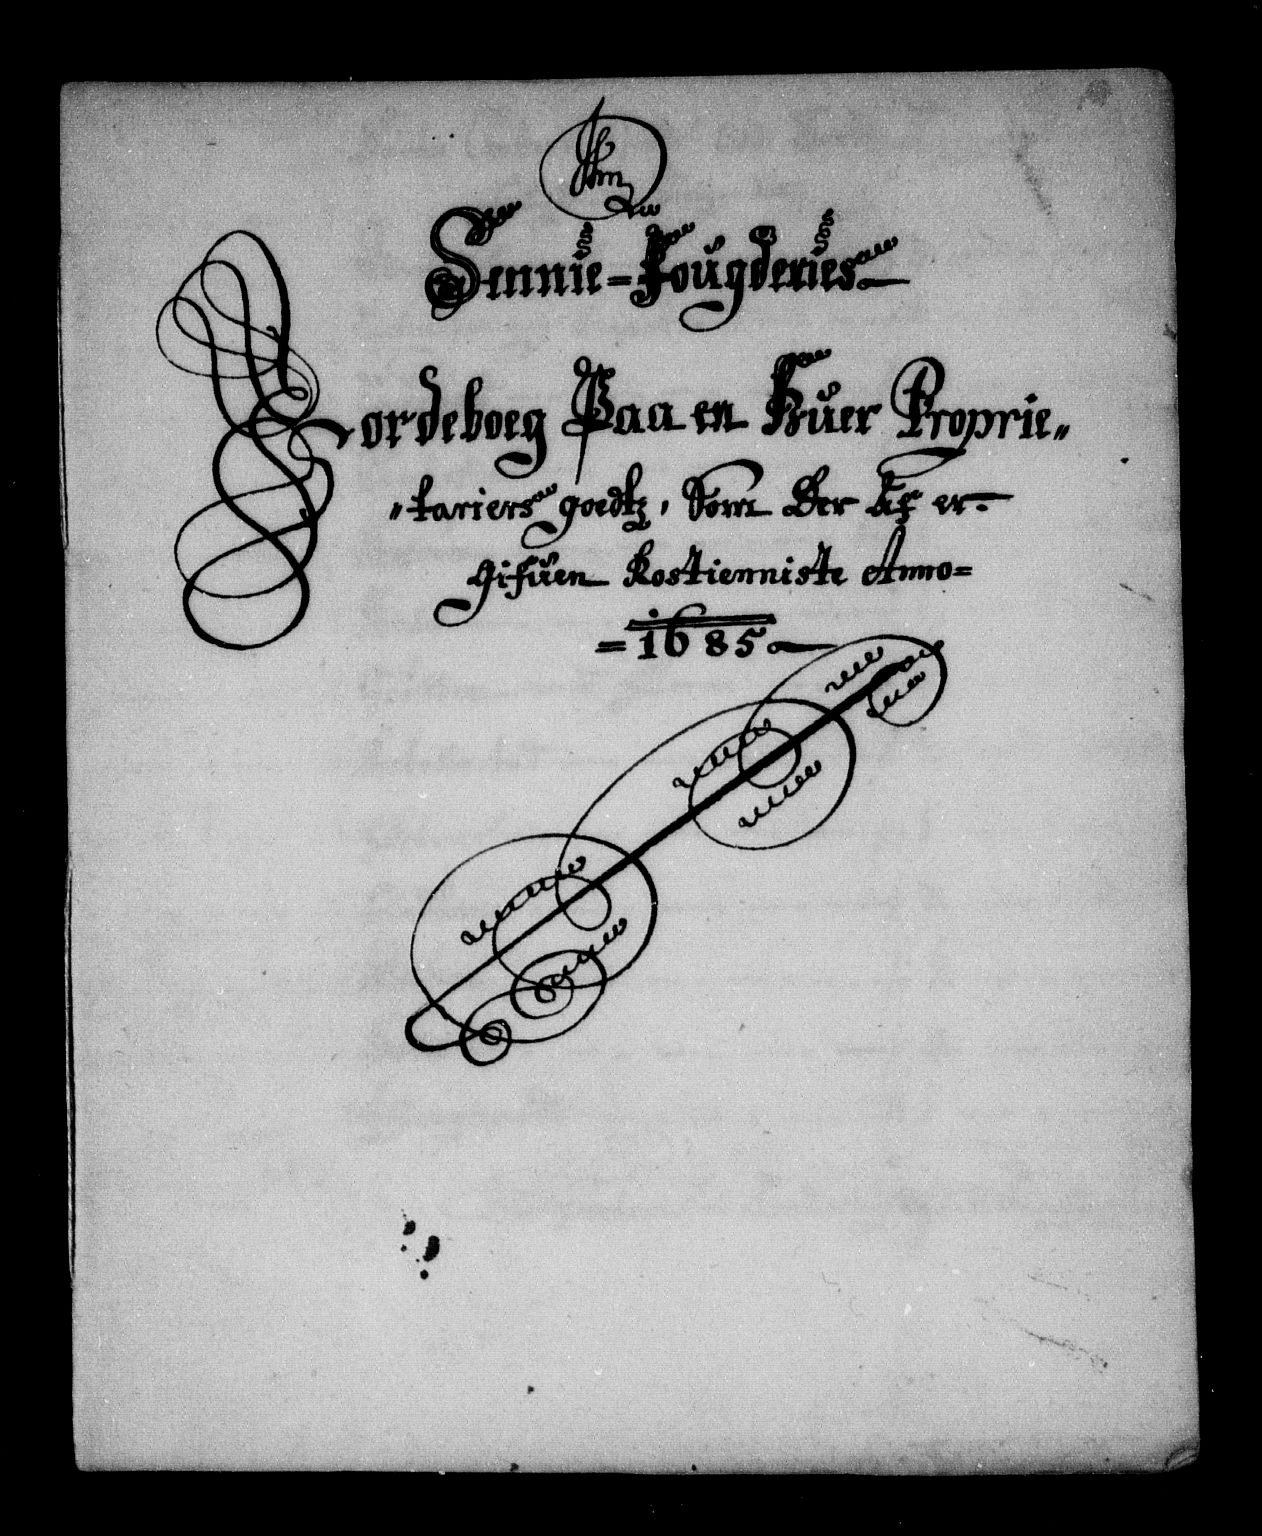 Sennie=Fougderies
Jordeboeg Paa en Huer Proprie„
„tariers goedtz, Som Der Af er
gifuen Rostienniste Anno=
=1685